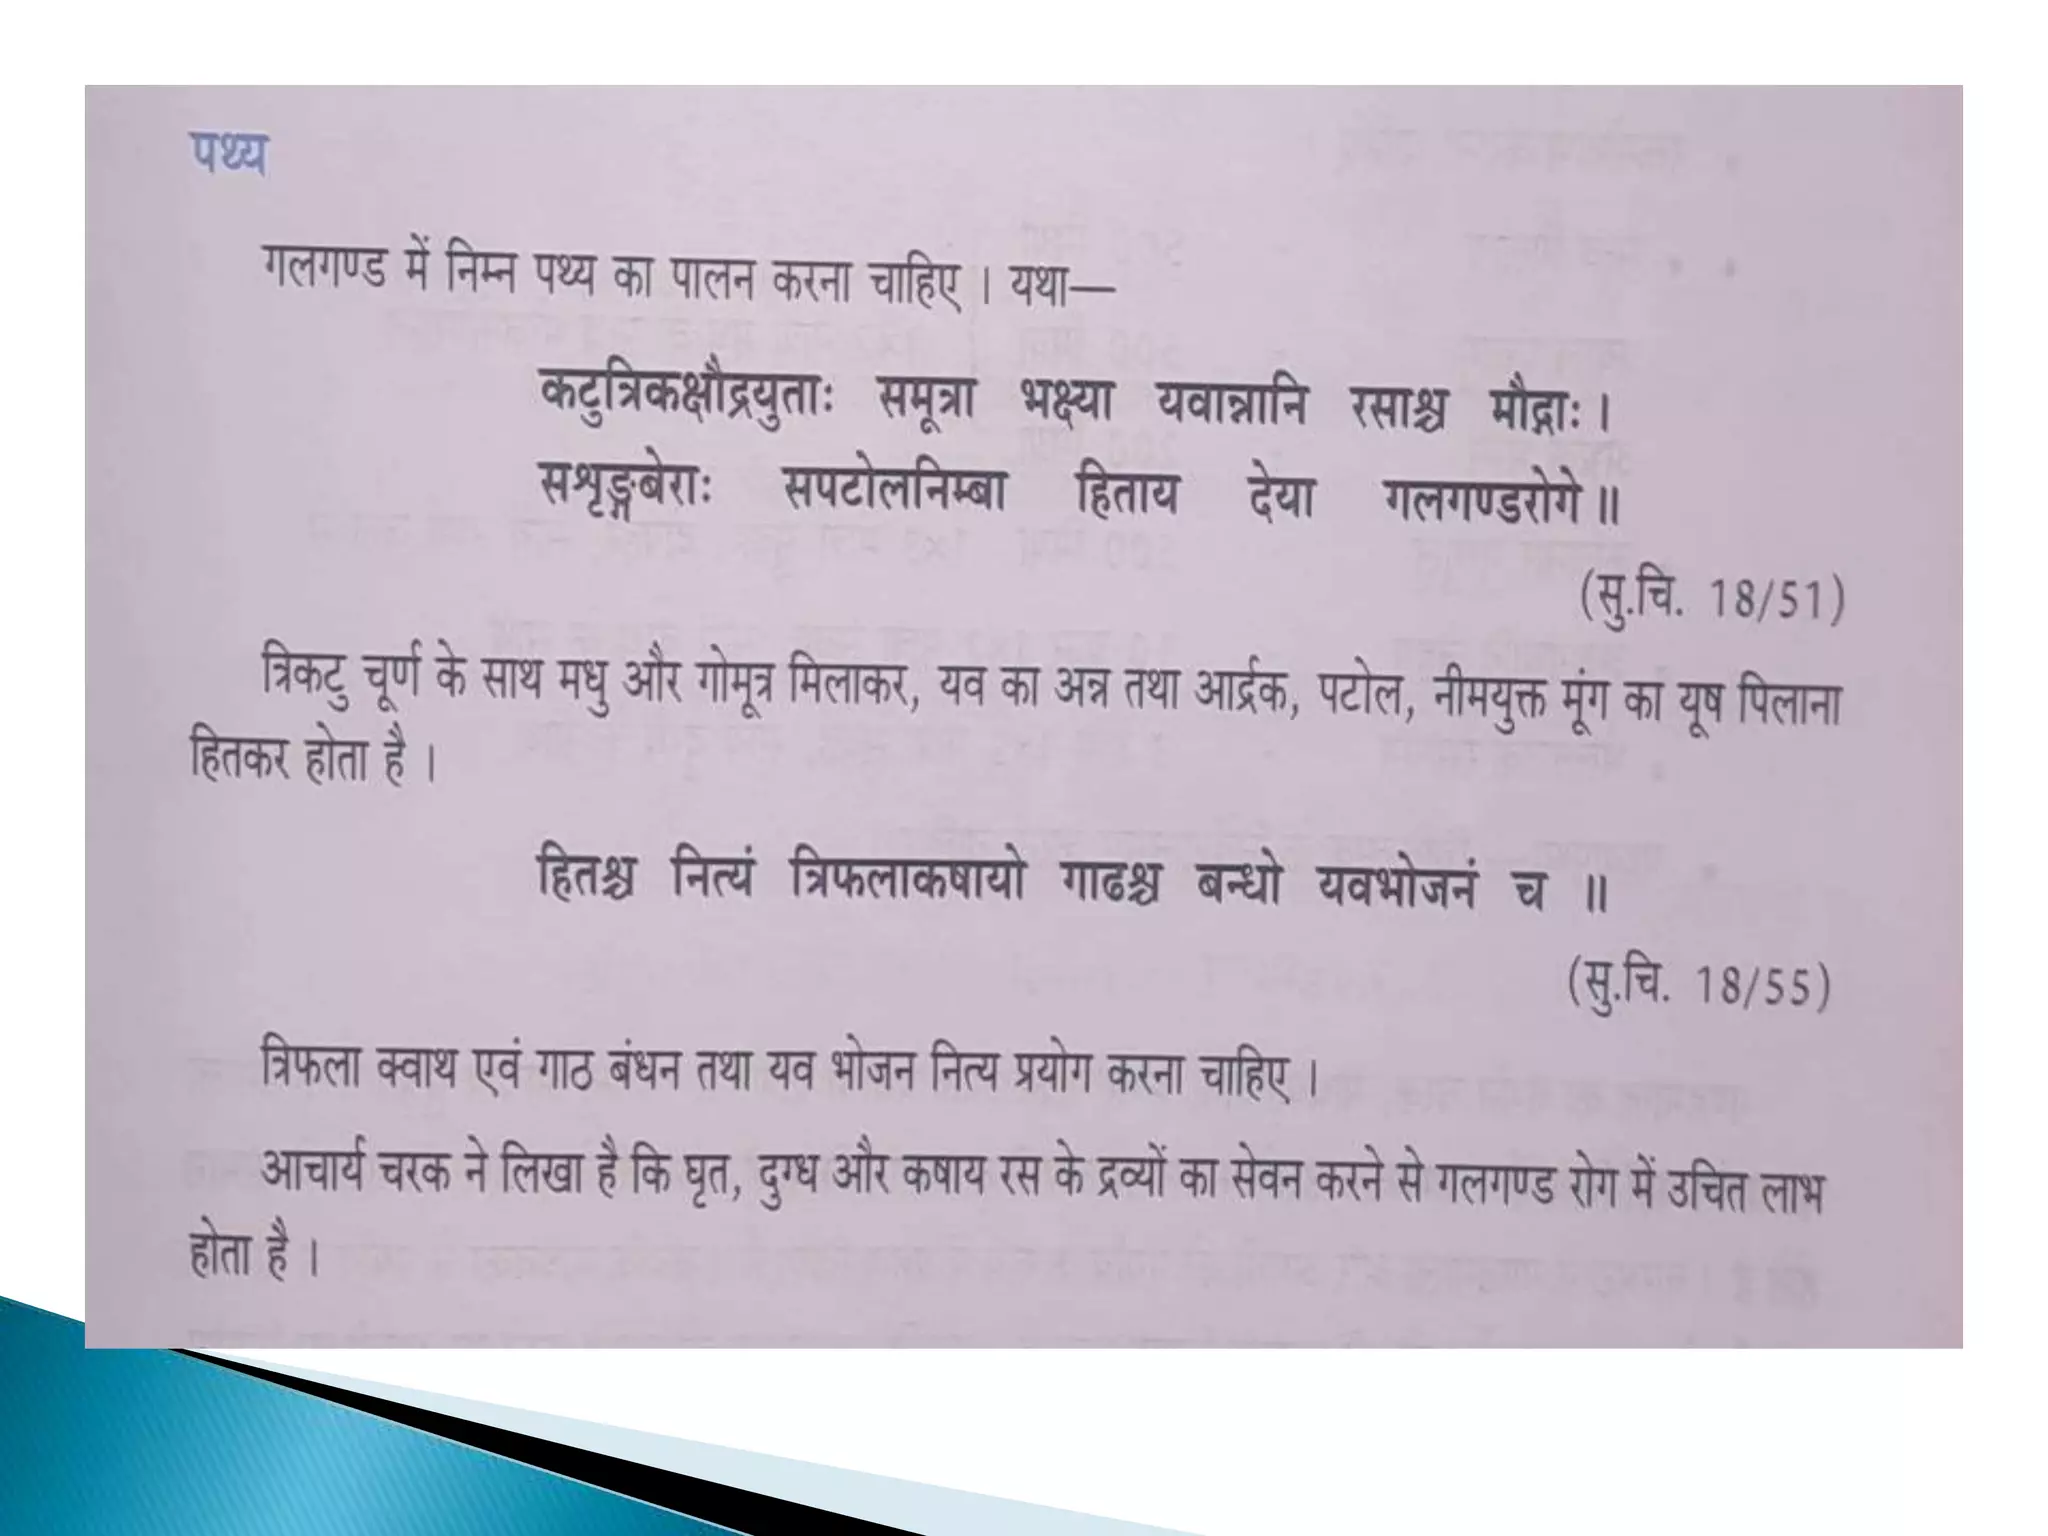 पथ्य
गलगण्ड में निम्न पथ्य का पालन करना चाहिए । यथा—
कटुत्रिकक्षौद्रयुताः समूत्रा भक्ष्या यवान्नानि रसाश्च मौद्गाः ।
सशृङ्गबेराः सपटोलनिम्बा हिताय देया गलगण्डरोगे ॥
(सु.चि. 18/51)
त्रिकटु चूर्ण के साथ मधु और गोमूत्र मिलाकर, यव का अन्न तथा आर्द्रक, पटोल, नीमयुक्त मूंग का यूष पिलाना
हितकर होता है ।
हितश्च नित्यं त्रिफलाकषायो गाढश्च बन्धो यवभोजनं च ॥
(सु.चि. 18/55)
त्रिफला क्वाथ एवं गाठ बंधन तथा यव भोजन नित्य प्रयोग करना चाहिए ।
आचार्य चरक ने लिखा है कि घृत, दुग्ध और कषाय रस के द्रव्यों का सेवन करने से गलगण्ड रोग में उचित लाभ
होता है ।